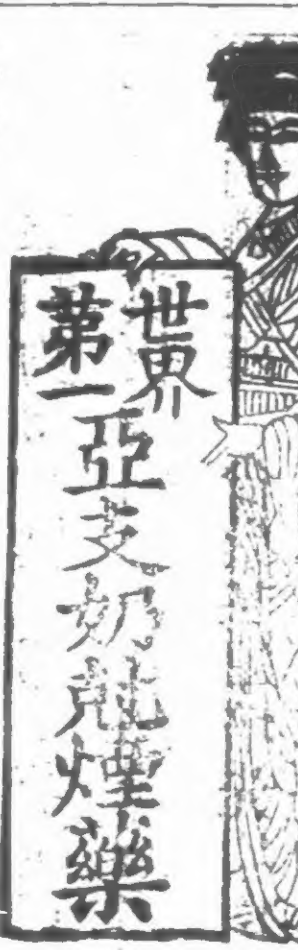 世界
第一
亞支奶煙藥